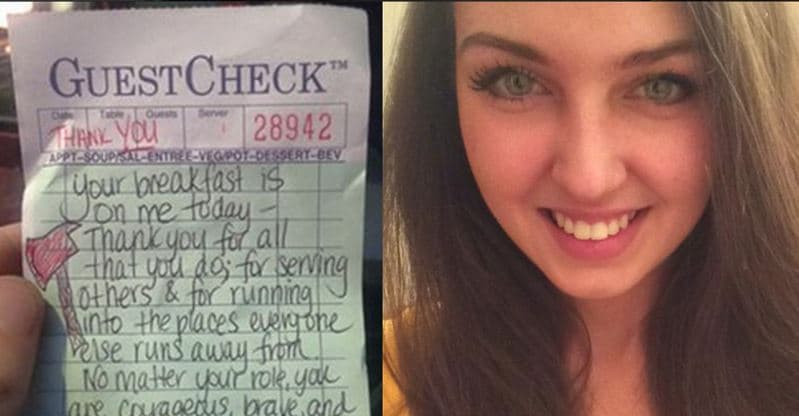 GUESTCHECK™
Date Table Guests Server
THANK YOU 28942
APPT-SOUP/SAL-ENTREE-VEG/POT-DESSERT-BEV
Your breakfast is
on me today -
Thank you for all
that you do; for serving
others & for running
into the places everyone
else runs away from.
No matter your role, you
are courageous, brave, and